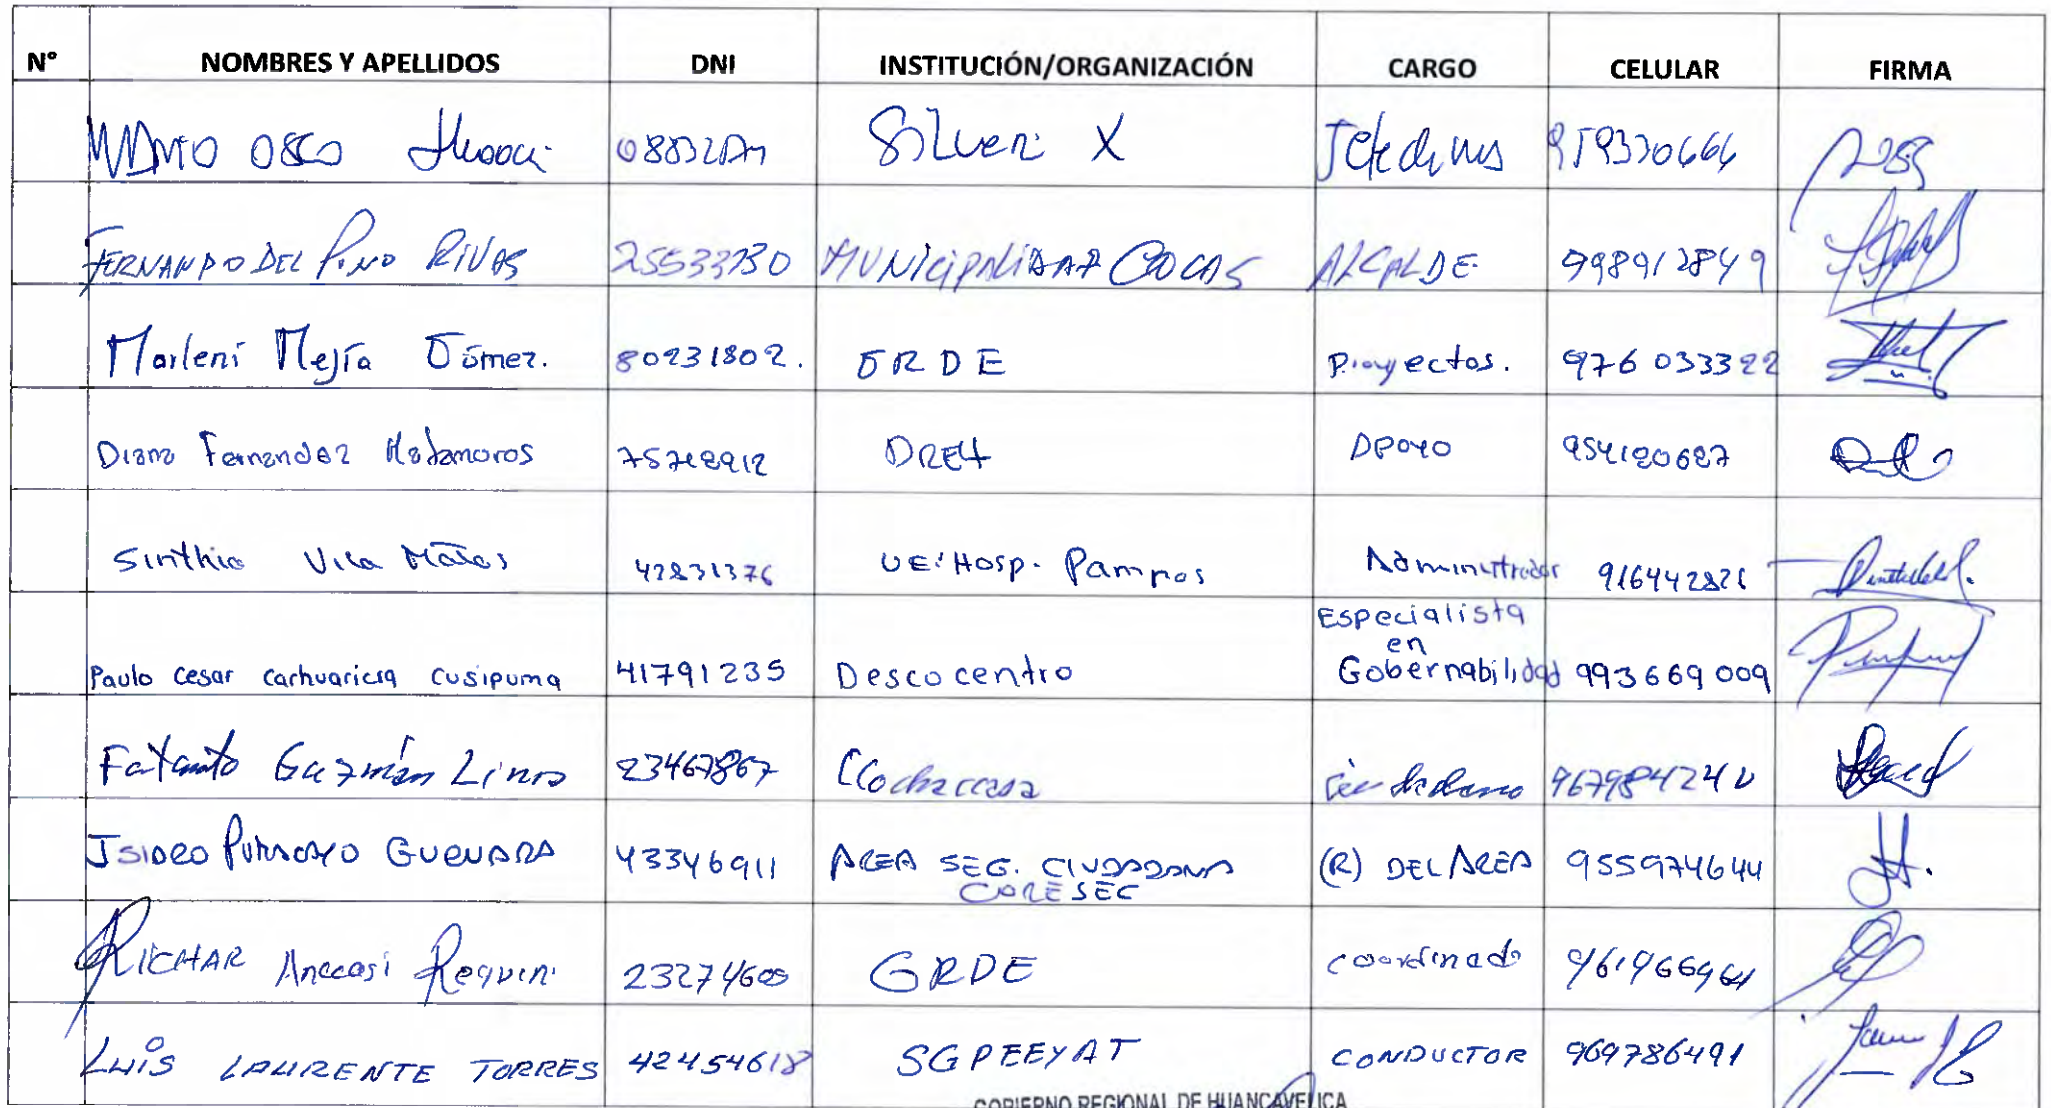 N° NOMBRES Y APELLIDOS DNI INSTITUCIÓN/ORGANIZACIÓN CARGO CELULAR FIRMA
OSCO Silver X 959330664
FERNANDO DEL PINO RIVAS 25533730 MUNICIPALIDAD COCAS ALCALDE 998912849
Marleni Mejía Gómez. 80231802. GRDE Proyectos. 976 033322
Diana Fernandez Matamoros DREH Apoyo
Sinthia Vila Matos 42831376 UE: Hosp. Pampas Administrador 916442826
Paulo Cesar Carhuaricra Cusipuma 41791235 Descocentro Especialista
en
Gobernabilidad 993669009
Guzmán 23467867 Ccochaccasa Ciudadano
ISIDRO GUEVARA 43346911 AREA SEG. CIUDADANA (R) DEL AREA 955974644
CORESEC
RICHAR GRDE Coordinado
LUIS LAURENTE TORRES 42454618 SGPEEYAT CONDUCTOR 969786491
GOBIERNO REGIONAL DE HUANCAVELICA